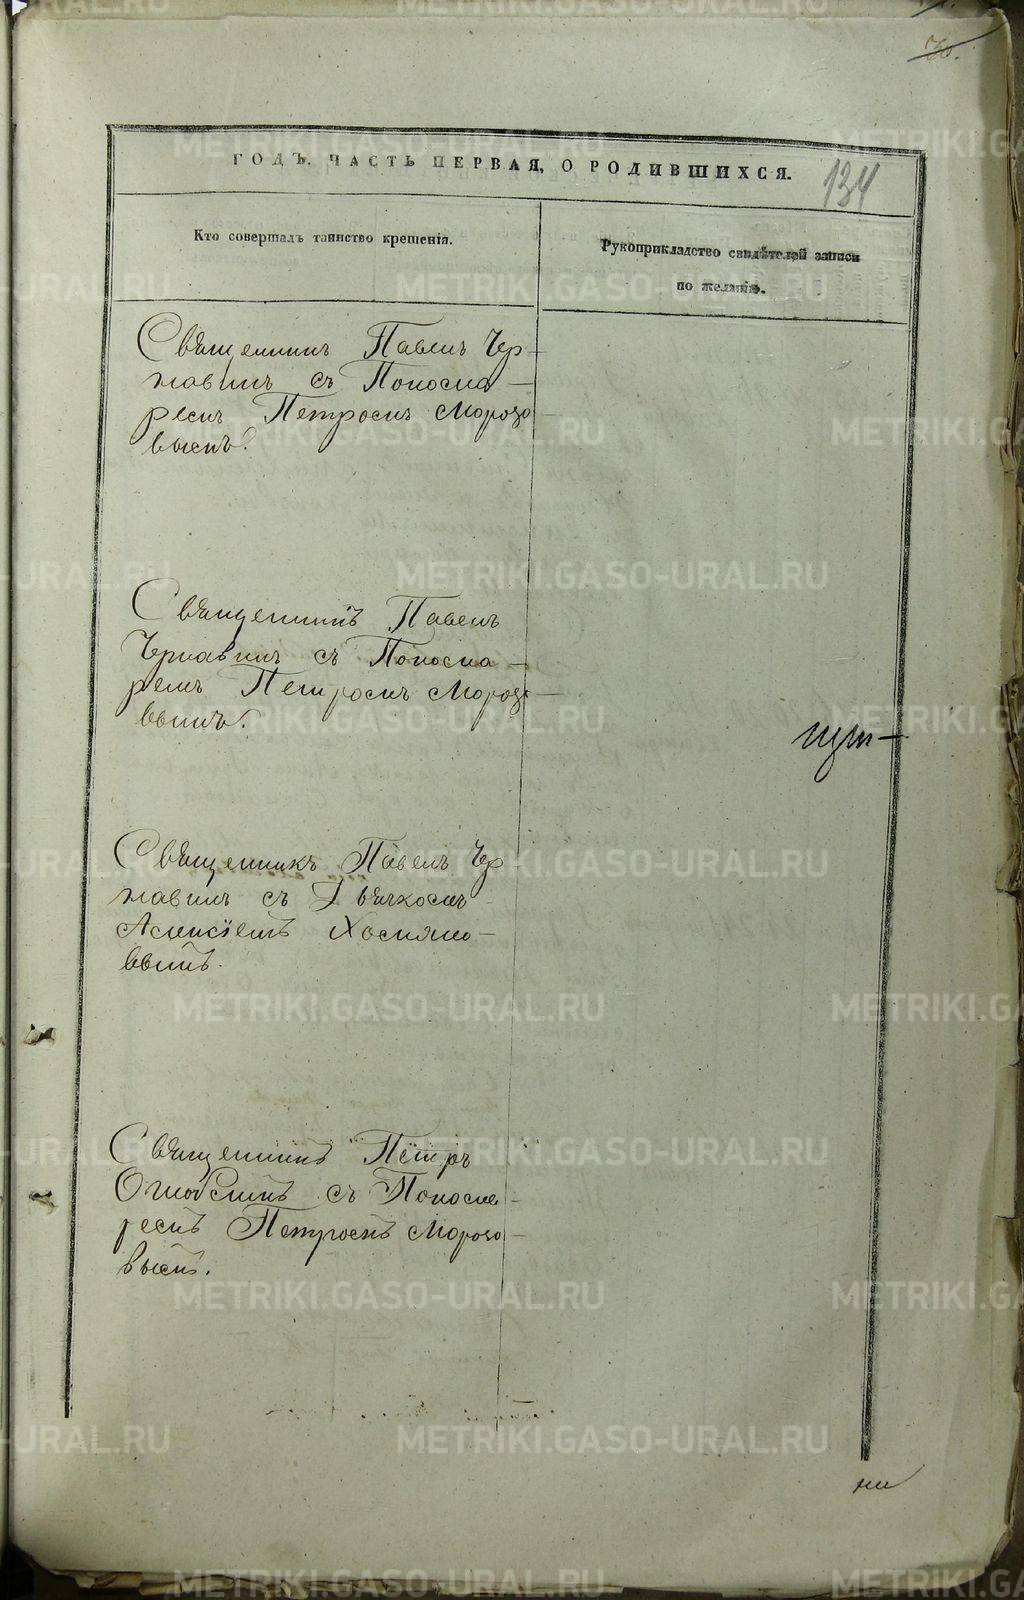 30.
ГОДЪ. ЧАСТЬ ПЕРВАЯ, О РОДИВШИХСЯ.
134
Кто совершалъ таинство крещенія.
Рукоприкладство свидѣтелей записи
по желанію.
Священникъ Павелъ Чер-
навинъ съ Поно­ма-
ремъ Петромъ Морозо
вымъ.
Священникъ Павелъ
Чернавинъ съ Понома-
ремъ Петромъ Морозо-
вымъ.
Священникъ Павелъ Чер
навинъ съ Дьячкомъ
Алексіемъ
вымъ.
Священникъ Петръ
съ Понома-
ремъ Петромъ Морозо-
вымъ.
METRIKI.GASO-URAL.RU